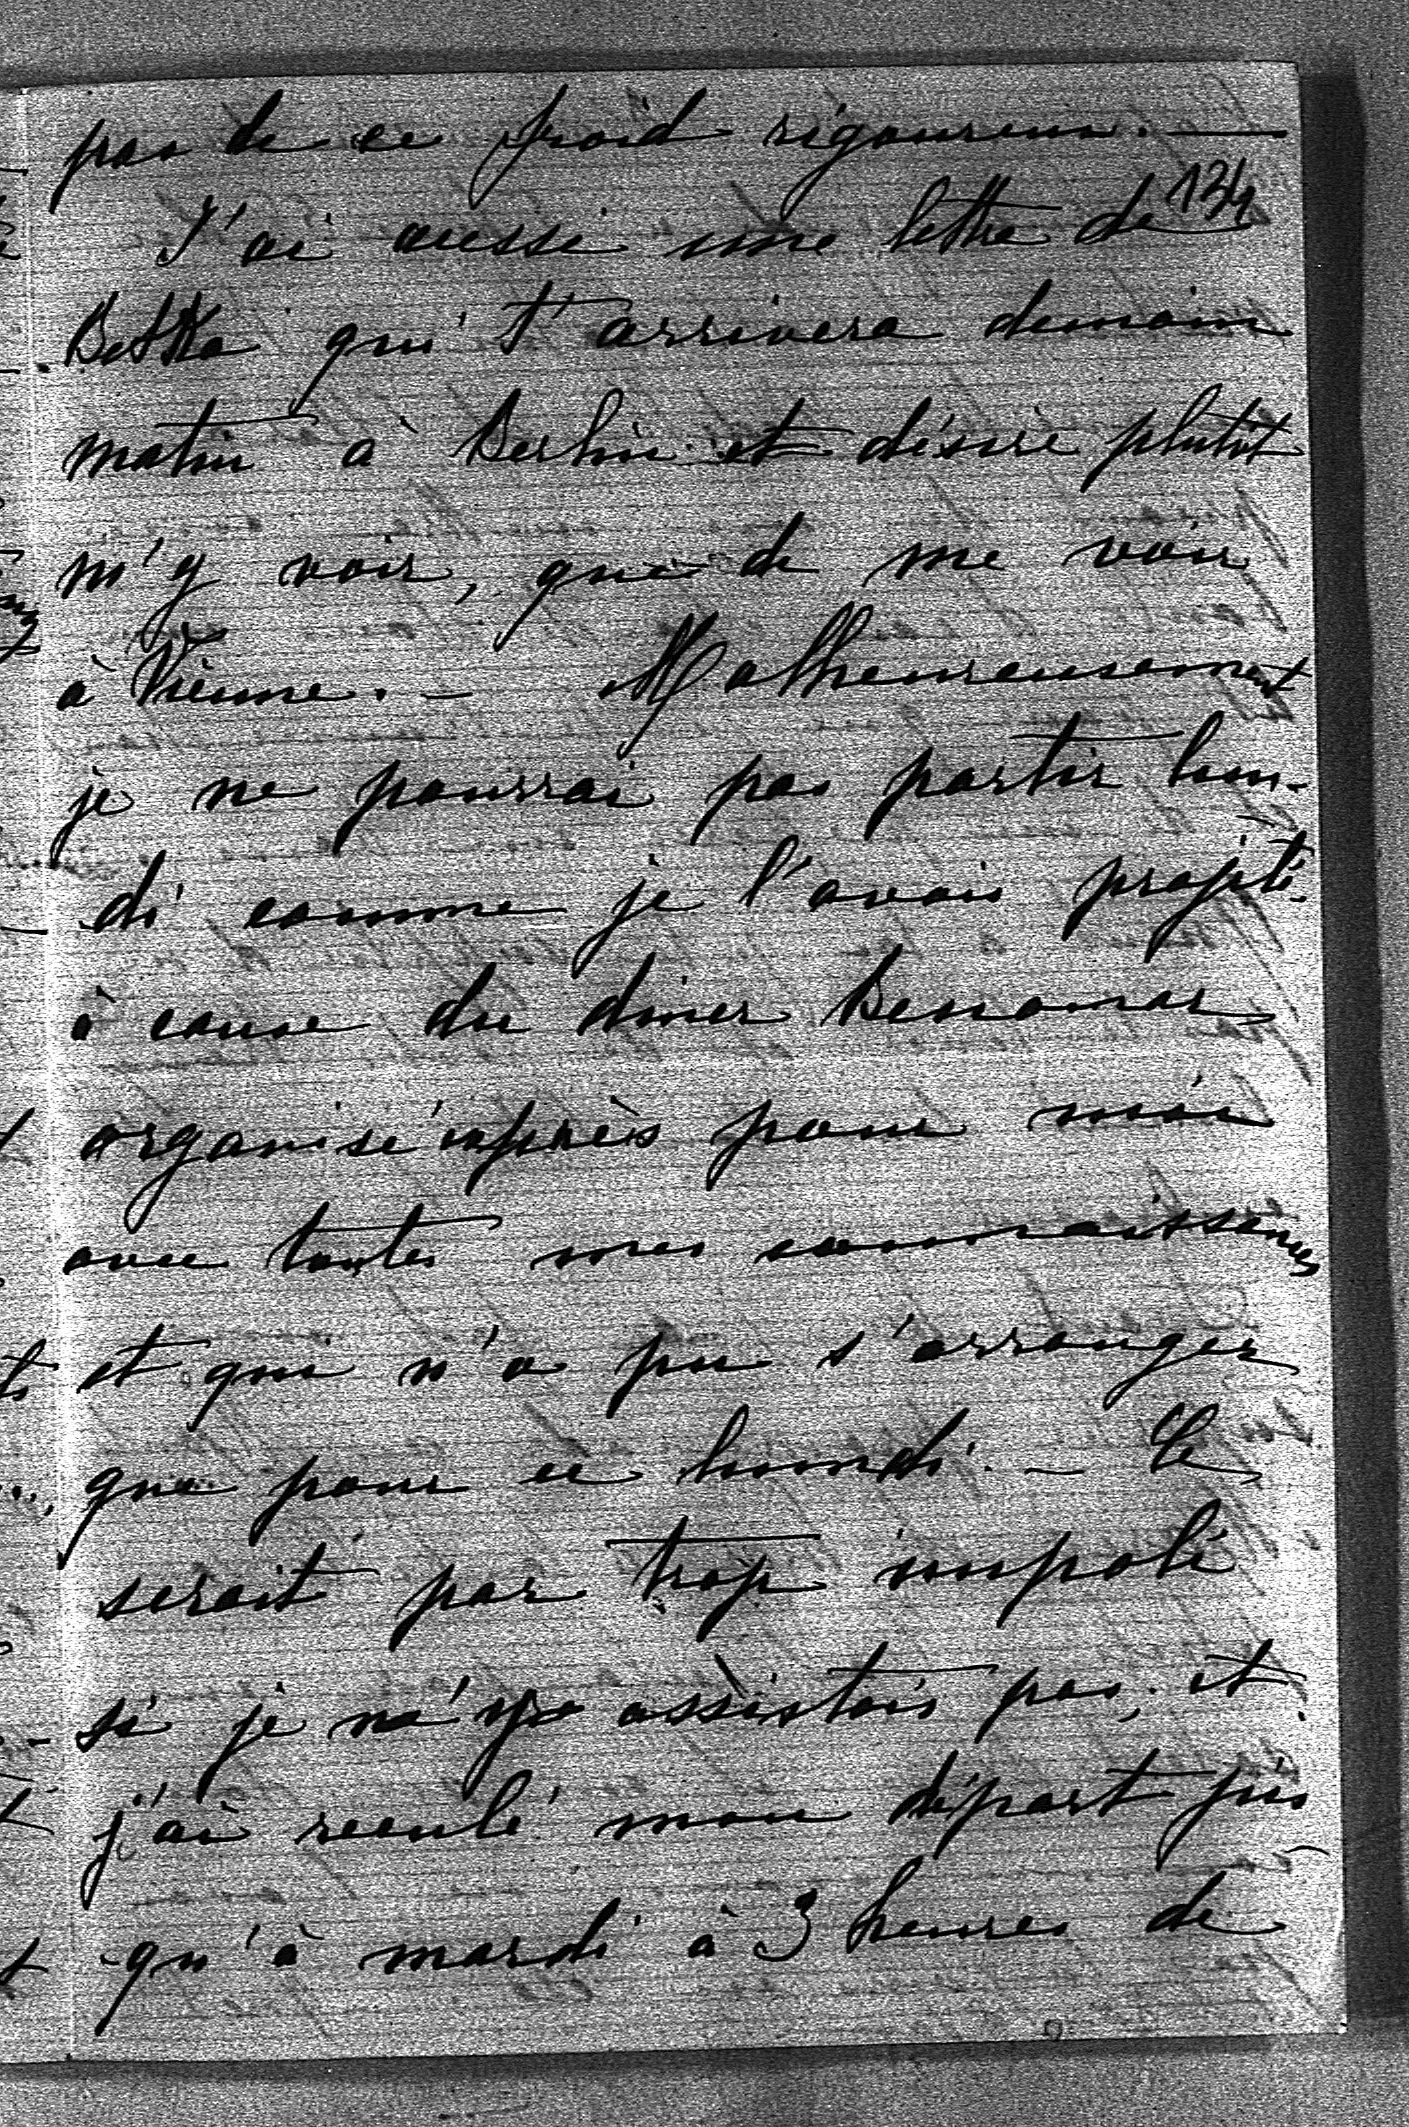 pas de ce froid rigoureux. —
134
J'ai aussi une lettre de
Betka qui t'arrivera demain
matin à Berlin et désire plutôt
m'y voir, que de me voir
à Vienne. — Malheureusement
je ne pourrai pas partir lun-
di comme je l'avais projeté
à cause du diner
organisé exprès pour moi
avec toutes mes connaissances
et qui n'a pu s'arranger
que pour ce lundi. — Ce
serait par trop impoli
si je n'y assistais pas, et
j'ai reculé mon départ jus-
qu'à mardi à 3 heures de